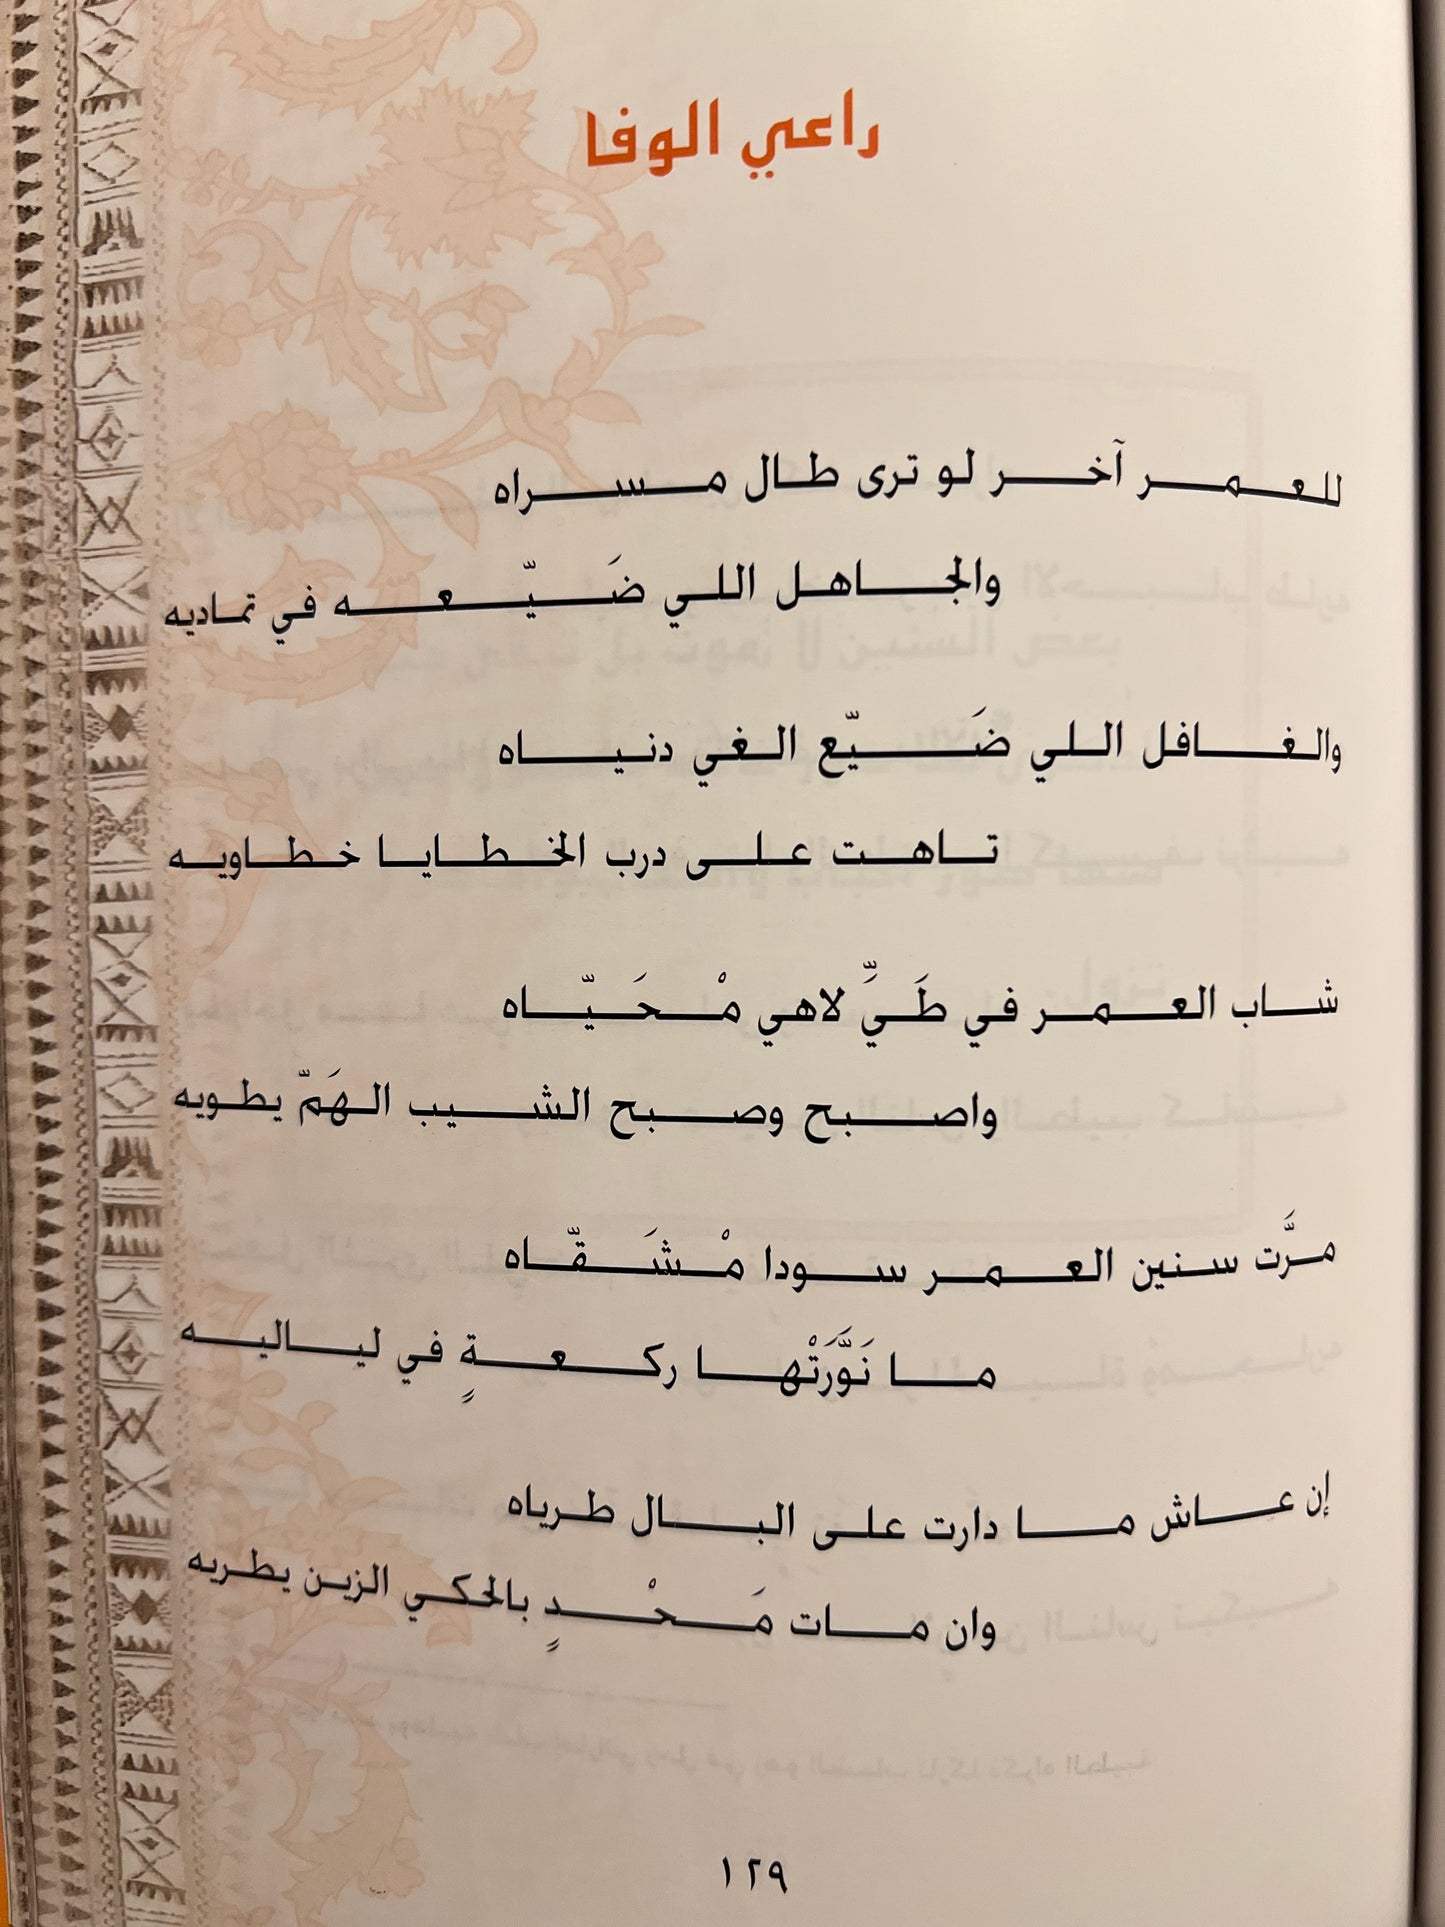 راعي الوفا
للعمر آخر لو ترى طال مسراه
والجاهل اللي ضَيّعه في تماديه
والغافل اللي ضَيّع الغي دنياه
تاهت على درب الخطايا خطاويه
شاب العمر في طَيِّ لاهي مْحَيّاه
واصبح وصبح الشيب الهَمّ يطويه
مرَّت سنين العمر سودا مْشَقّاه
ما نَوَّرَتْها ركعةٍ في لياليه
إن عاش ما دارت على البال طرياه
وان مات مَحْدٍ بالحكي الزين يطريه
١٢٩